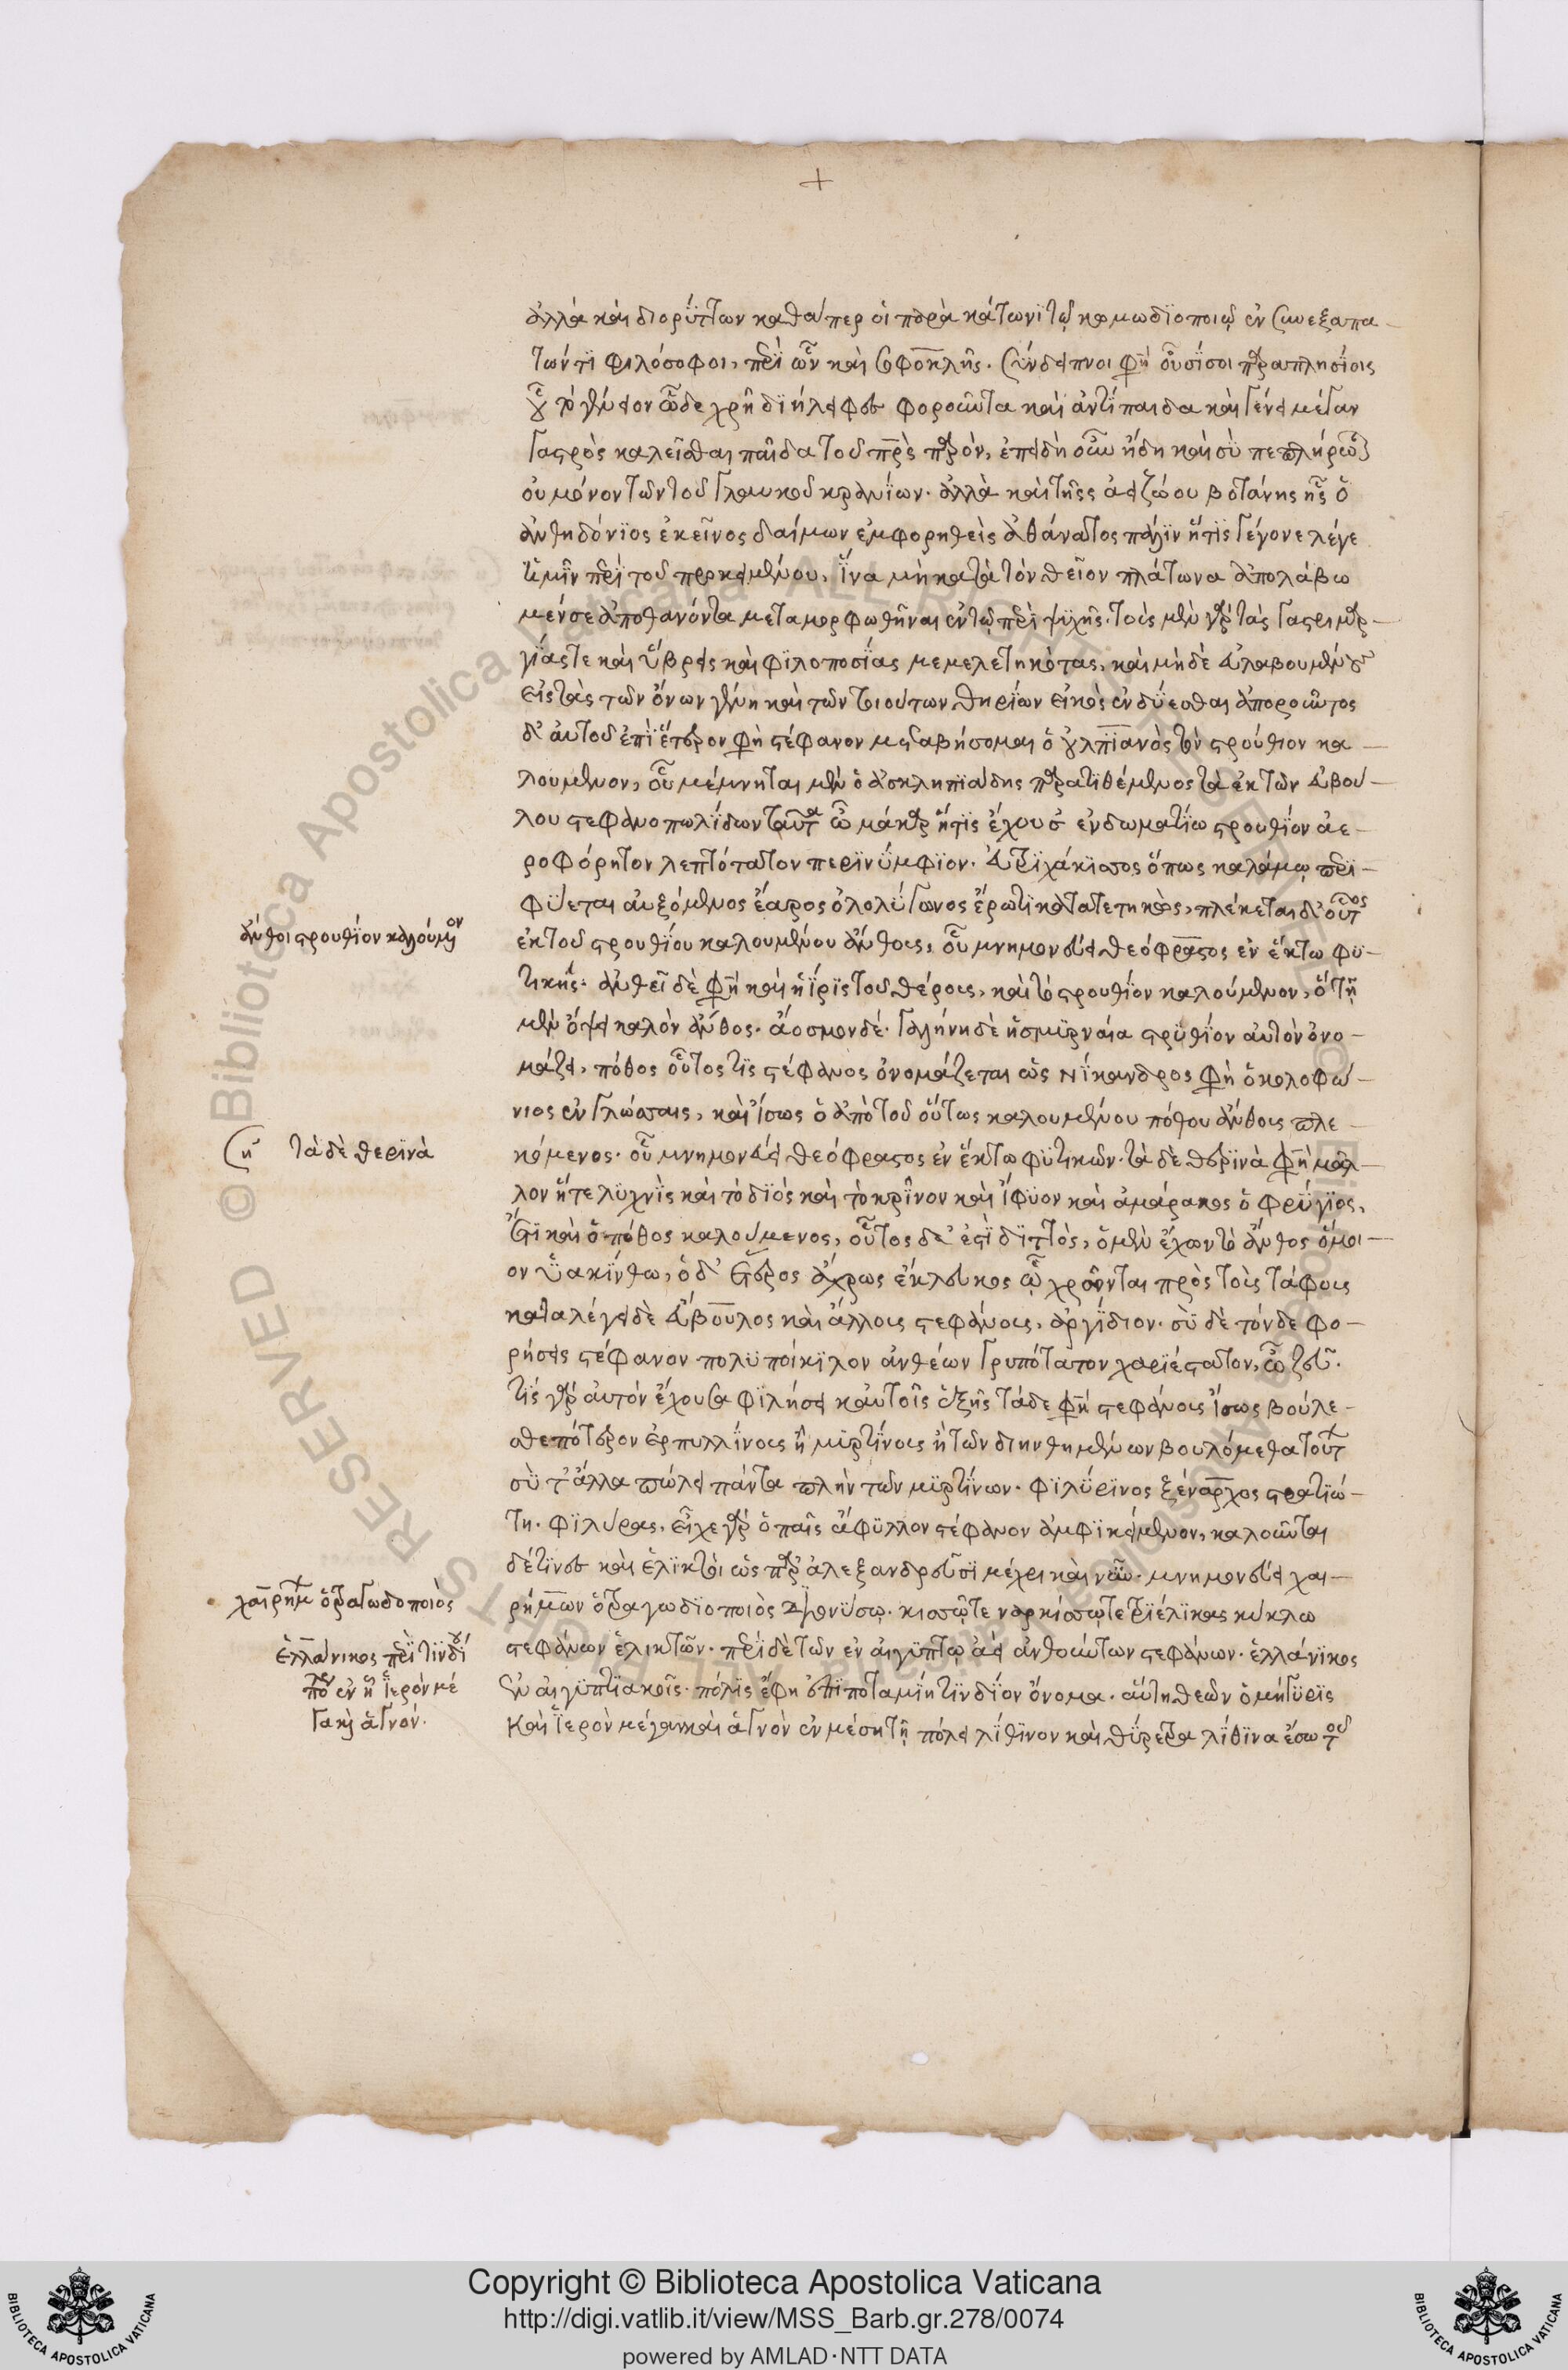 +
ἀλλὰ καὶ διορύττων καθάπερ οἱ παρὰ βάτωνι τῷ κωμωδιοποιῷ ἐν συνεξαπα
τῶντι φιλόσοφοι, περὶ ὧν καὶ σοφοκλῆς. σύνδειπνοι φησὶ
γένειον ὧδε χρὴ διηλιφὲς φοροῦντα καὶ ἀντίπαιδα καὶ γένει μέγαν
γαστρὸς καλεῖσθαι παῖδα τοῦ πρὸς παρὸν, ἐπειδὴ οὖν ἤδη καὶ σὺ πεπλήρωσαι
οὐ μόνον τῶν τοῦ γλαύκου κρανίων. ἀλλὰ καὶ τῆς ἀειζώου βοτάνης ἧς ὁ
ἀνθηδόνιος ἐκεῖνος δαίμων ἐμφορηθεὶς ἀθάνατος πάλιν ἥτις γέγονε λέγε
ἡμῖν περὶ τοῦ προκειμένου, ἵνα μὴ κατὰ τὸν θεῖον πλάτωνα ἀπολάβω
μέν σε ἀποθανόντα μεταμορφωθῆναι ἐν τῷ περὶ ψυχῆς. τοὺς μὲν γὰρ τὰς γαστριμαρ
γίας τε καὶ ὕβρεις καὶ φιλοποσίας μεμελετηκότας, καὶ μὴ δὲ εὐλαβουμένους
εἰς τὰς τῶν ὄνων γένη καὶ τῶν τοιούτων θηρίων εἰκὸς ἐνδύεσθαι ἀποροῦντος
δ' αὐτοῦ ἐπὶ ἕτερον φησὶ στέφανον μεταβήσομαι ὁ οὐλπιανὸς τὸν στρούθιον κα
λούμενον, οὗ μέμνηται μὲν ὁ ἀσκληπιάδης παρατιθέμενος τὰ ἐκ τῶν εὐβού
λου στεφανοπωλίδων ταῦτα ὦ μάκαρ ἥτις ἔχουσ' ἐν δωματίω στρουθίον ἀε
ροφόρητον λεπτότατον περὶ νύμφιον. εὐτρίχα κισσος ὅπως καλάμῳ περι
φύεται αὐξόμενος ἔαρος ὀλολύγωνος ἔρωτι κατατετηκὼς, πλέκεται δ' οὗτος
ἄνθοι στρουθίον καλούμενον
ἐκ τοῦ στρουθίου καλουμένου ἄνθους, οὗ μνημονεύει θεόφραστος ἐν ἕκτω φυ
τικῆς. ἀνθεῖ δὲ φησὶ καὶ ἡ ἶρις τοῦ θέρους, καὶ τὸ στρουθίον καλούμενον, ὅ τῇ
μὲν ὄψει καλὸν ἄνθος. ἄοσμον δέ. γαλήνη δὲ ἡ σμυρναία στρύθιον αὐτὸν ὀνο
μάζει, πόθος οὗτός τις στέφανος ὀνομάζεται ὡς νίκανδρος φησὶ ὁ κολοφώ
νιος ἐν γλώσσαις, καὶ ἴσως ὁ ἀπὸ τοῦ οὕτως καλουμένου πόθου ἄνθους πλε
ση τὰ δὲ θερινὰ
κόμενος. οὗ μνημονεύει θεόφραστος ἐν ἕκτω φυτικῶν. τὰ δὲ θερινὰ φησὶ μᾶλ
λον ἥ τε λυχνὶς καὶ τὸ διὸς καὶ τὸ κρῖνον καὶ ἴφυον καὶ ἀμάρακος ὁ φρύγιος,
ἔτι καὶ ὁ πόθος καλούμενος, οὗτος δ' ἐστὶ διττὸς, ὁ μὲν ἔχων τὸ ἄνθος ὅμοι
ον ὑακίνθω, ὁ δ' ἕτερος ἄχρως ἔκλευκος ᾧ χρῶνται πρὸς τοὺς τάφους
καταλέγει δὲ εὔβουλος καὶ ἄλλους στεφάνους, ἀργίδιον. σὺ δὲ τόνδε φο
ρήσεις στέφανον πολυποίκιλον ἀνθέων γρυπότατον χαριέστατον, ὦ ζεῦ.
τίς γὰρ αὐτὸν ἔχουσα φιλήσει καὐτοῖς ἑξῆς τάδε φησὶ στεφάνους ἴσως βούλε
σθε πότερον ἑρπυλλίνους ἢ μυρτίνους ἢ τῶν διηνθημένων βουλόμεθα
σὺ τ' ἄλλα πώλει πάντα πλὴν τῶν μυρτίνων. φιλύρινος ξέναρχος στρατιώ
τη. φιλύρας, εἶχε γὰρ ὁ παῖς ἀφύλλον στέφανον ἀμφικείμενον, καλοῦνται
δέ τινες καὶ ἑλικτοὶ ὡς παρ' ἀλεξανδρεῦσι μέχρι καὶ νῦν. μνημονεύει χαι
χαιρήμων ὁ τραγωδοποιὸς
ρήμων ὁ τραγωδιοποιὸς διονύσῳ. κισσῷ τε ναρκίσσῳ τε τριέλικας κύκλω
ἑλλάνικος περὶ τινδίου
πόλεως ἐν ᾗ ἱερὸν μέ
γα καὶ ἁγνόν.
στεφάνων ἑλικτῶν. περὶ δὲ τῶν ἐν αἰγύπτῳ ἀεὶ ἀνθούντων στεφάνων. ἑλλάνικος
ἐν αἰγυπτιακοῖς. πόλις ἔφη ἐπιποταμίη τίνδιον ὄνομα. αὕτη θεῶν ὁμήγυρις
καὶ ἱερὸν μέγα καὶ ἁγνὸν ἐν μέση τῇ πόλει λίθινον καὶ θύρετρα λίθινα ἔσω τοῦ
Copyright © Biblioteca Apostolica Vaticana
http://digi.vatlib.it/view/MSS_Barb.gr.278/0074
powered by AMLAD·NTT DATA
BIBLIOTECA APOSTOLICA VATICANA
BIBLIOTECA APOSTOLICA VATICANA